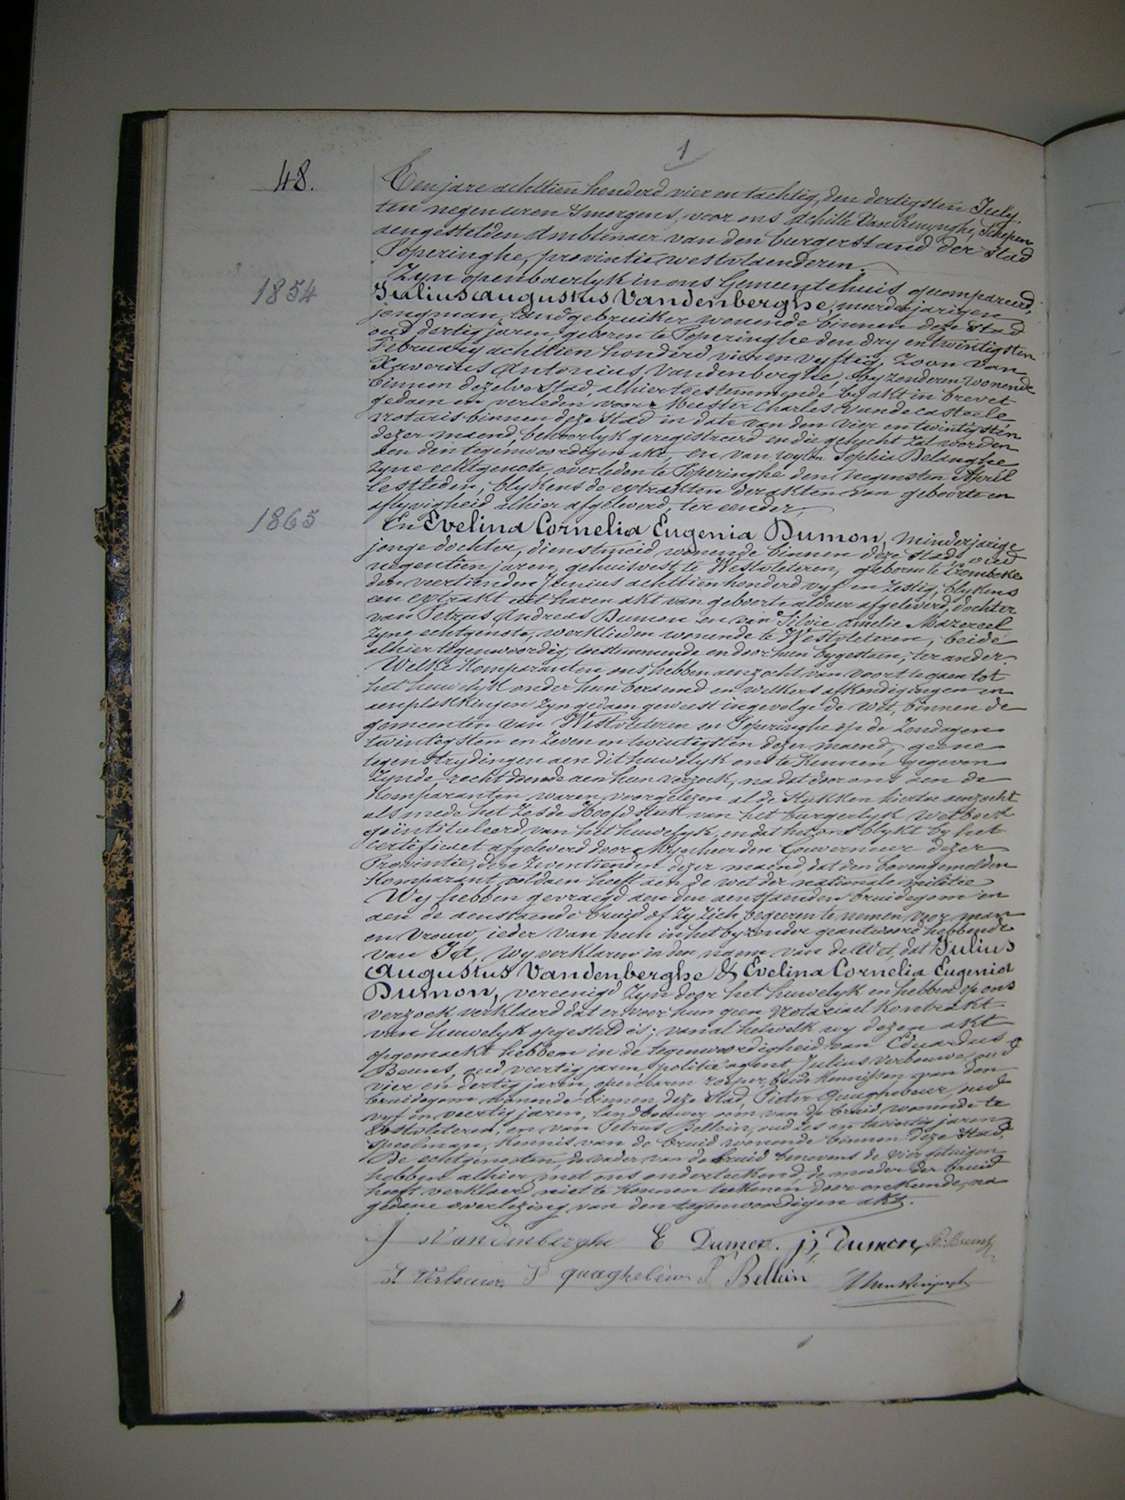 1
48.
Ten jare achttien honderd vier en tachtig, den dertigsten July
ten negen uren 's morgens, voor ons Achille Van Renynghe, Schepen
aengestelden Ambtenaer van den burgerstand der Stad
Poperinghe, provintie Westvlaenderen
Zyn openbaerlyk in ons Gemeentehuis gecompareerd,
1854
Julius Augustus Vandenberghe, meerderjarigen
jongman, landgebruiker wonende binnen deze Stad
oud dertig jaren, geboren te Poperinghe den dry en twintigsten
February achttien honderd vier en vyftig, Zoon van
Xaverius Antonius Vandenberghe, byzonderen, wonende
binnen dezelve Stad, alhier toestemmende by akt in brevet
gedaen en verleden voor Meester Charles Vandecasteele
notaris binnen deze Stad in date van den vier en twintigsten
dezer maend, behoorlyk geregistreerd en die gehecht zal worden
aen den tegenwoordigen akt, en van wylen Sophia Belanghe
zyne echtgenote, overleden te Poperinghe den negensten April
lestleden, blykens de extrakten der akten van geboorte en
aflyvigheid alhier afgeleverd, ter eender,
1865
En Evelina Cornelia Eugenia Dumon, minderjarige
jonge dochter, dienstmeid, wonende binnen deze Stad, oud
negentien jaren, gehuisvest te Westvleteren, geboren te Crombeke
den veertienden Junius achttien honderd vyf en zestig, blykens
een extrakt uit haren akt van geboorte aldaer afgeleverd, dochter
van Petrus Andreas Dumon en van Silvie Amelie Mazereel
zyne echtgenote, werklieden wonende te Westvleteren, beide
alhier tegenwoordig, toestemmende en door hun bygestaen, ter ander.
Welke Komparanten ons hebben aenzocht van voort te gaen tot
het huwelyk onder hun beraemd en welkers afkondigingen en
aenplekkingen zyn gedaen geweest ingevolge de Wet, binnen de
gemeenten van Westvleteren en Poperinghe op de Zondagen
twintigsten en zeven en twintigsten dezer maend, geene
tegenstrydingen aen dit huwelyk ons te kennen gegeven
zynde, recht doende aen hun verzoek, na dat door ons aen de
Komparanten waren voorgelezen al de stukken hiertoe aenzocht
als mede het Zesde Hoofdstuk van het burgerlyk Wetboek
geïntituleerd van het huwelyk, en dat het ons blykt by het
certificaet afgeleverd door Mynheer den Gouverneur dezer
Provintie, den zeventienden dezer maend, dat den bovengemelden
Komparant, voldaen heeft aen de wet der nationale militie
Wy hebben gevraegd aen den aenstaenden bruidegom en
aen de aenstaende bruid of zy zich begeeren te nemen voor man
en vrouw, ieder van hun in het byzonder geantwoord hebbende
van Ja, wy verklaren in den naem van de Wet, dat Julius
Augustus Vandenberghe & Evelina Cornelia Eugenia
Dumon, vereenigd zyn door het huwelyk en hebben op ons
verzoek verklaerd dat er voor hun geen Notariael Kontrakt
van huwelyk opgesteld is; van al hetwelk wy dezen akt
opgemaekt hebben in de tegenwoordigheid van Eduardus
Beuns, oud veertig jaren, politie agent, Julius Verbouwe, oud
vier en dertig jaren, openbaren roeper, beide kennissen van den
bruidegom, wonende binnen deze Stad, Pieter Quaghebeur, oud
vyf en veertig jaren, landbouwer, oom van de bruid wonende te
Oostvleteren, en van Petrus Bellein, oud zes en twintig jaren
speelman, kennis van de bruid wonende binnen deze Stad.
De echtgenoten, de vader van de bruid benevens de vier getuigen
hebben alhier met ons onderteekend, de moeder der bruid
heeft verklaerd niet te konnen teekenen door onkunde, na
gedane overlezing van den tegenwoordigen akt.
J Vandenberghe E Dumon. p, Dumon, E. Beuns
J Verbouwe P quaghebeur P Bellein AVanRenynghe